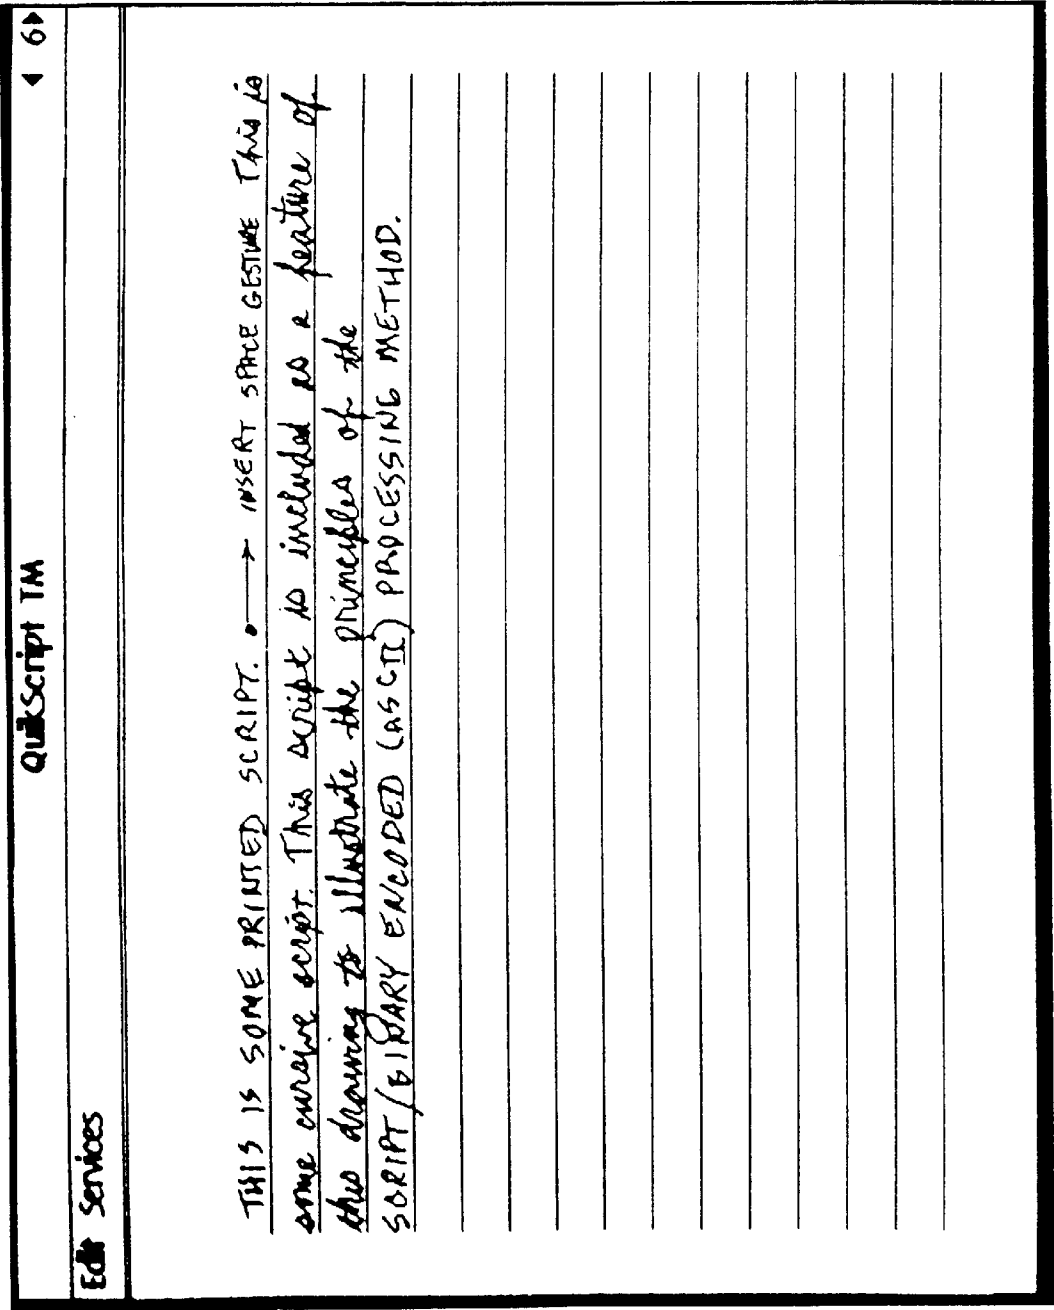 QuikScript TM ◄ 6►
Edit Services
THIS IS SOME PRINTED SCRIPT. •⟶ INSERT SPACE GESTURE This is
some cursive script. This script is included as a feature of
this drawing to illustrate the principles of the
SCRIPT/BINARY ENCODED (ASCII) PROCESSING METHOD.